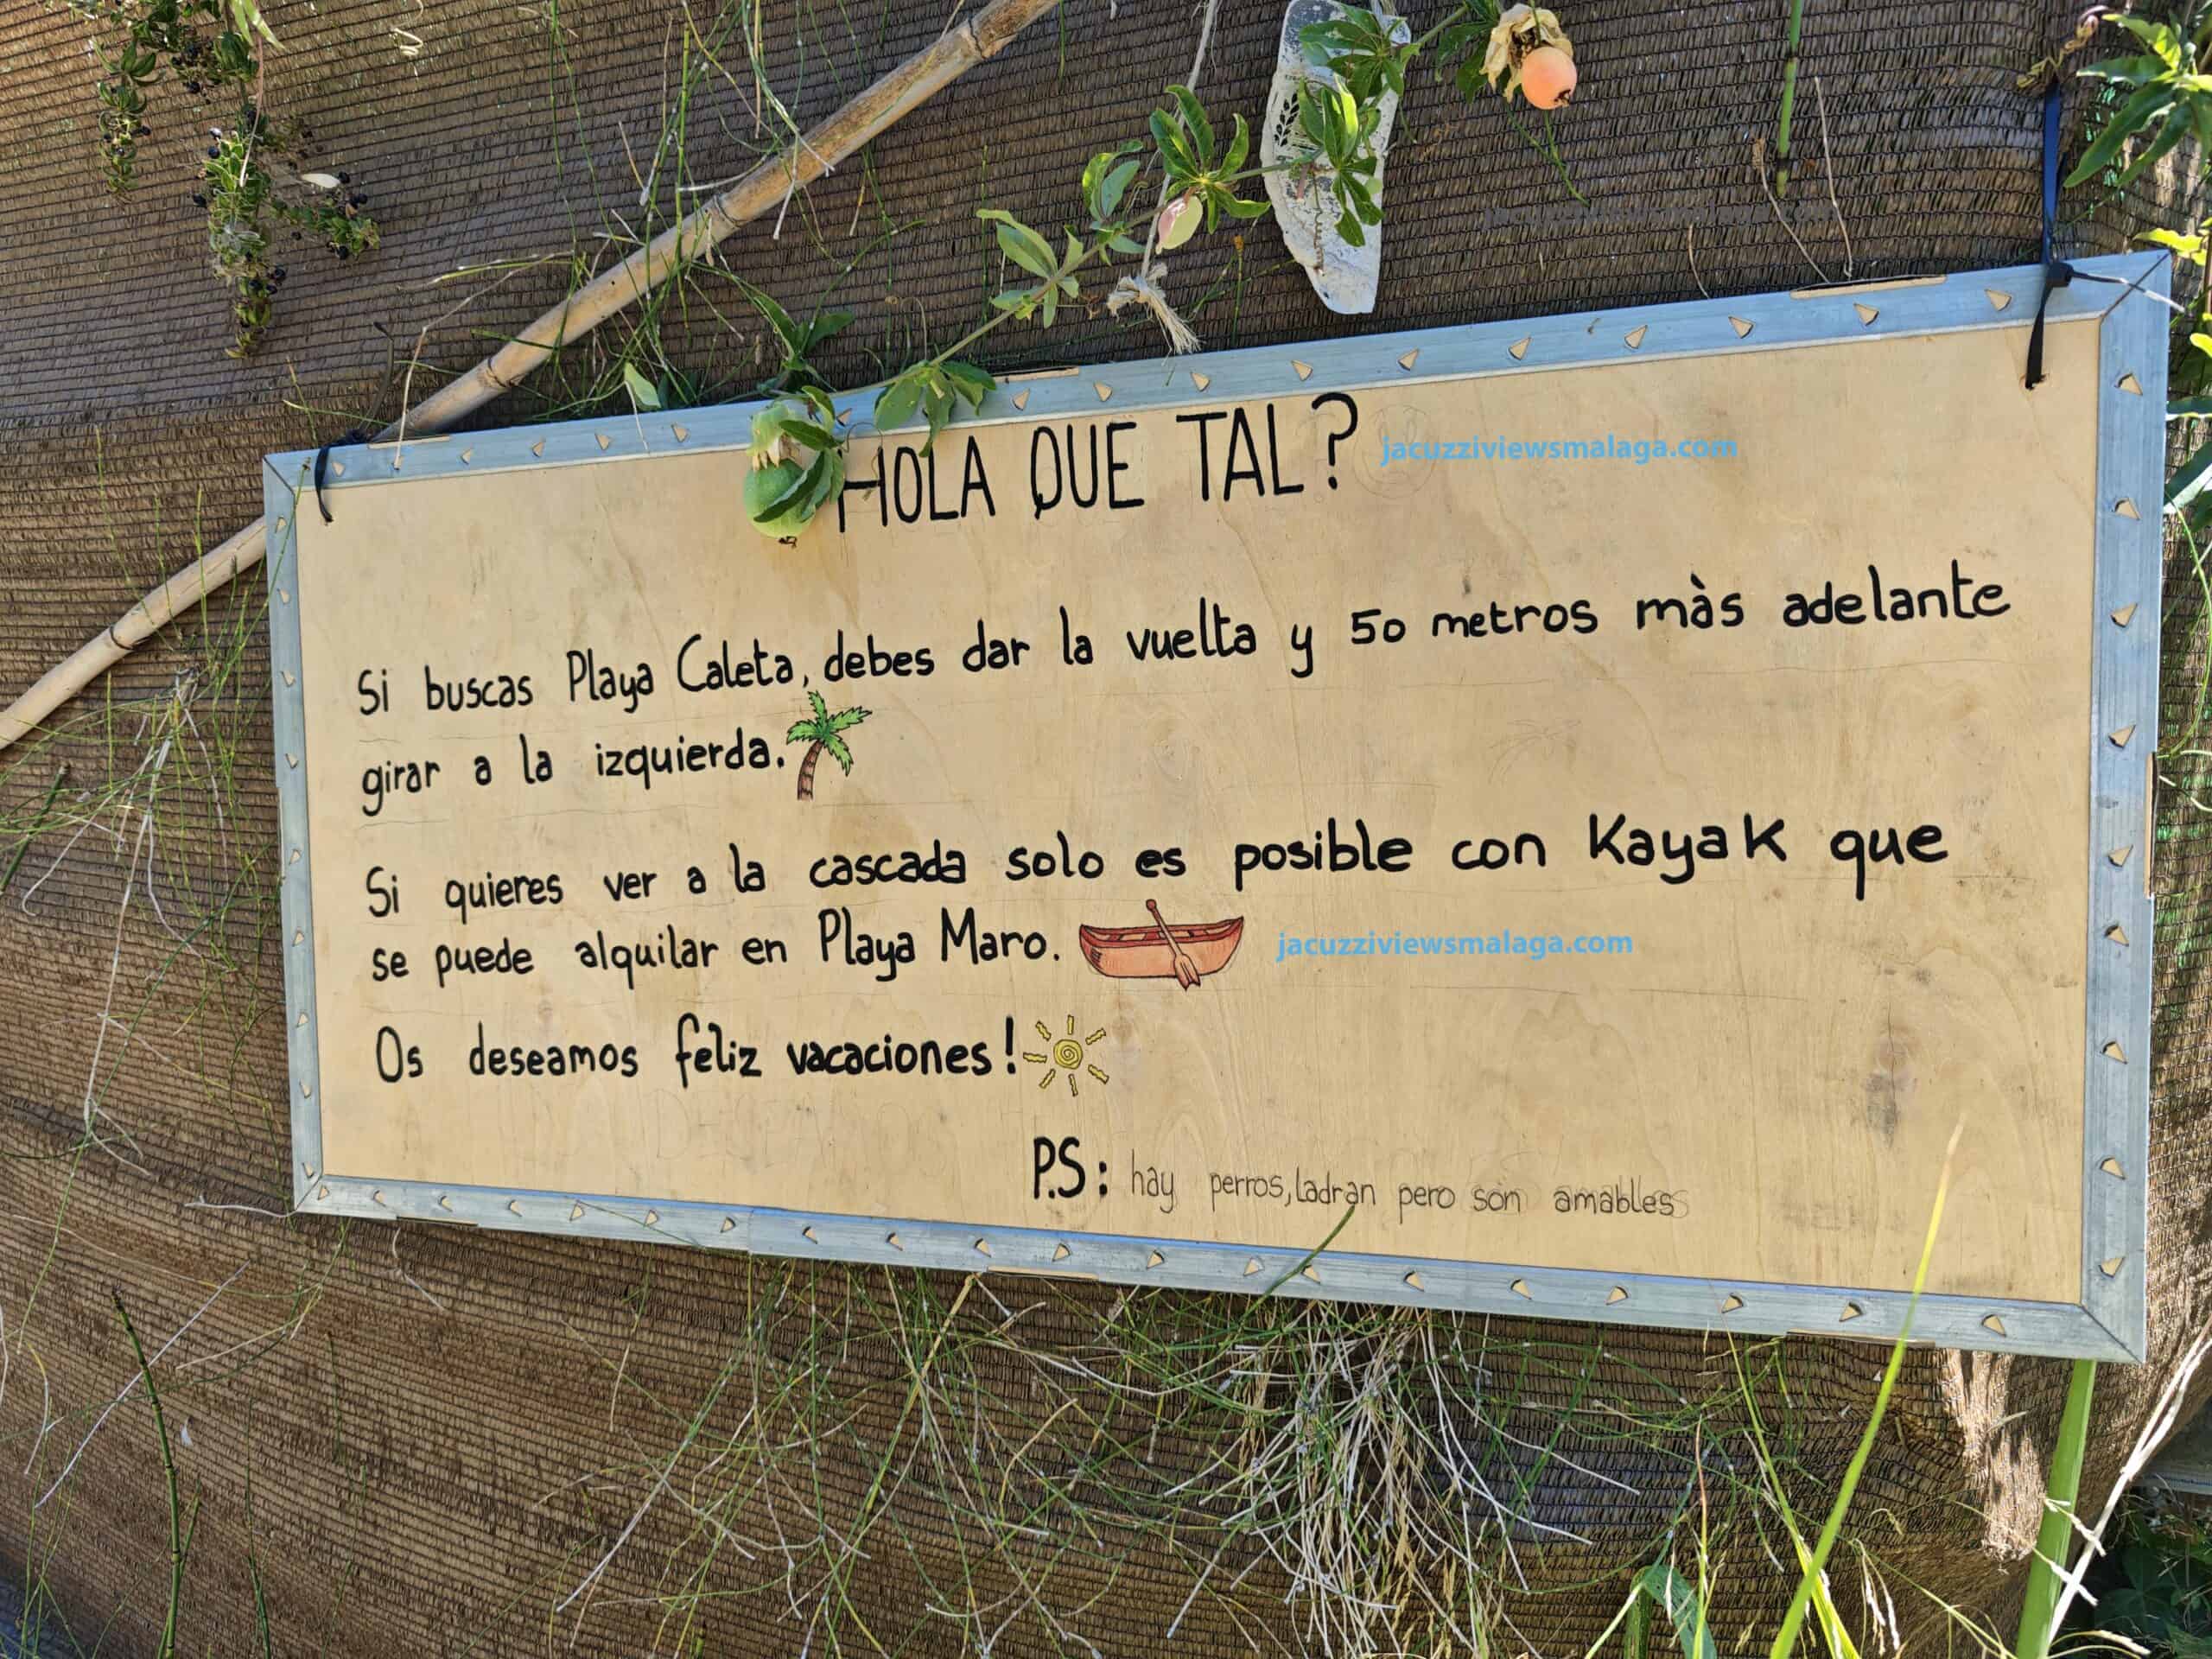 HOLA QUE TAL?
jacuzziviewsmalaga.com
Si buscas Playa Caleta, debes dar la vuelta y 50 metros màs adelante
girar a la izquierda.
Si quieres ver a la cascada solo es posible con Kayak que
se puede alquilar en Playa Maro.
jacuzziviewsmalaga.com
Os deseamos feliz vacaciones!
P.S: hay perros, ladran pero son amables